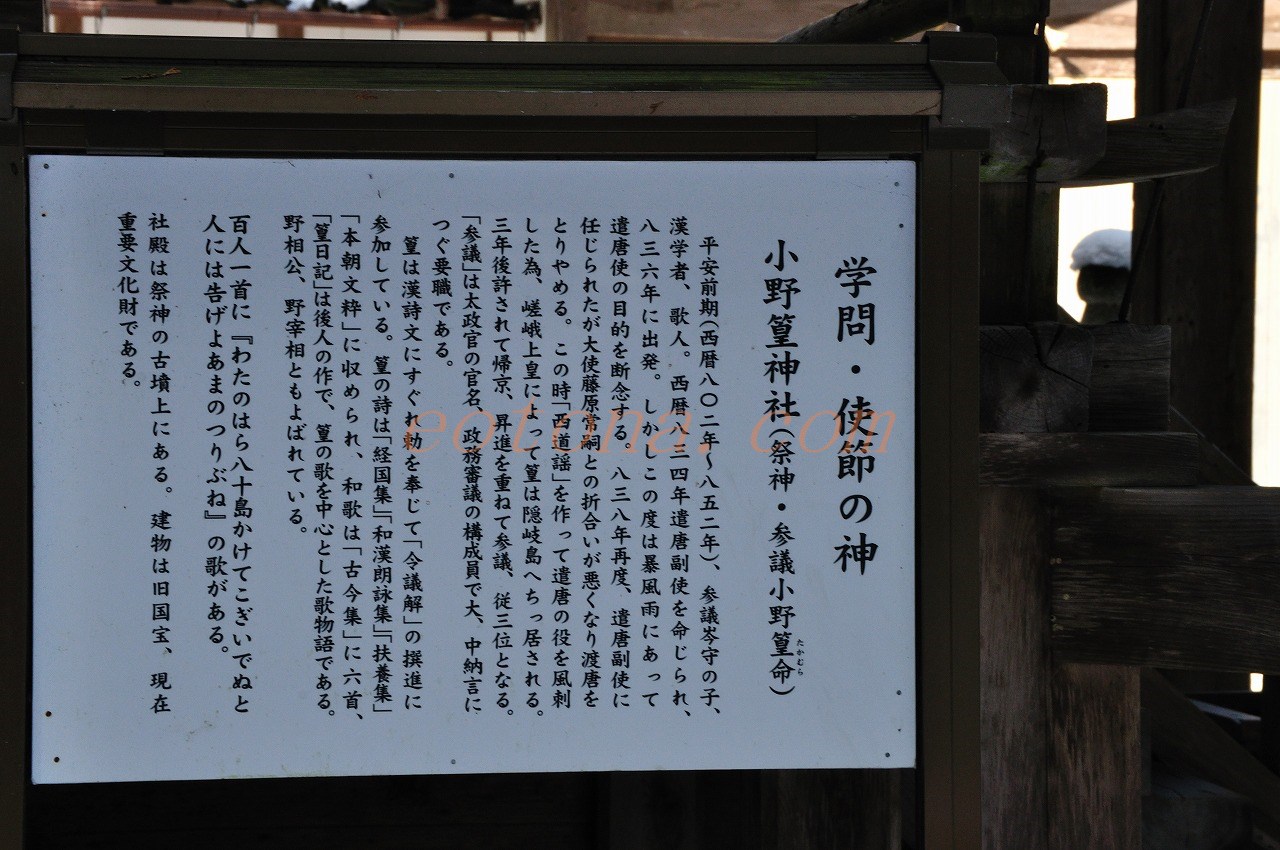 学問・使節の神
小野篁神社(祭神・参議小野篁命)
たかむら
平安前期(西暦八〇二年～八五二年)、参議岑守の子、
漢学者、歌人。西暦八三四年遣唐副使を命じられ、
八三六年に出発。しかしこの度は暴風雨にあって
遣唐使の目的を断念する。八三八年再度、遣唐副使に
任じられたが大使藤原常嗣との折合いが悪くなり渡唐を
とりやめる。この時「西道謡」を作って遣唐の役を風刺
した為、嵯峨上皇によって篁は隠岐島へちっ居される。
三年後許されて帰京、昇進を重ねて参議、従三位となる。
「参議」は太政官の官名、政務審議の構成員で大、中納言に
つぐ要職である。
篁は漢詩文にすぐれ勅を奉じて「令議解」の撰進に
参加している。篁の詩は「経国集」「和漢朗詠集」「扶養集」
「本朝文粋」に収められ、和歌は「古今集」に六首、
「篁日記」は後人の作で、篁の歌を中心とした歌物語である。
野相公、野宰相ともよばれている。
百人一首に『わたのはら八十島かけてこぎいでぬと
人には告げよあまのつりぶね』の歌がある。
社殿は祭神の古墳上にある。建物は旧国宝、現在
重要文化財である。
eotona.com